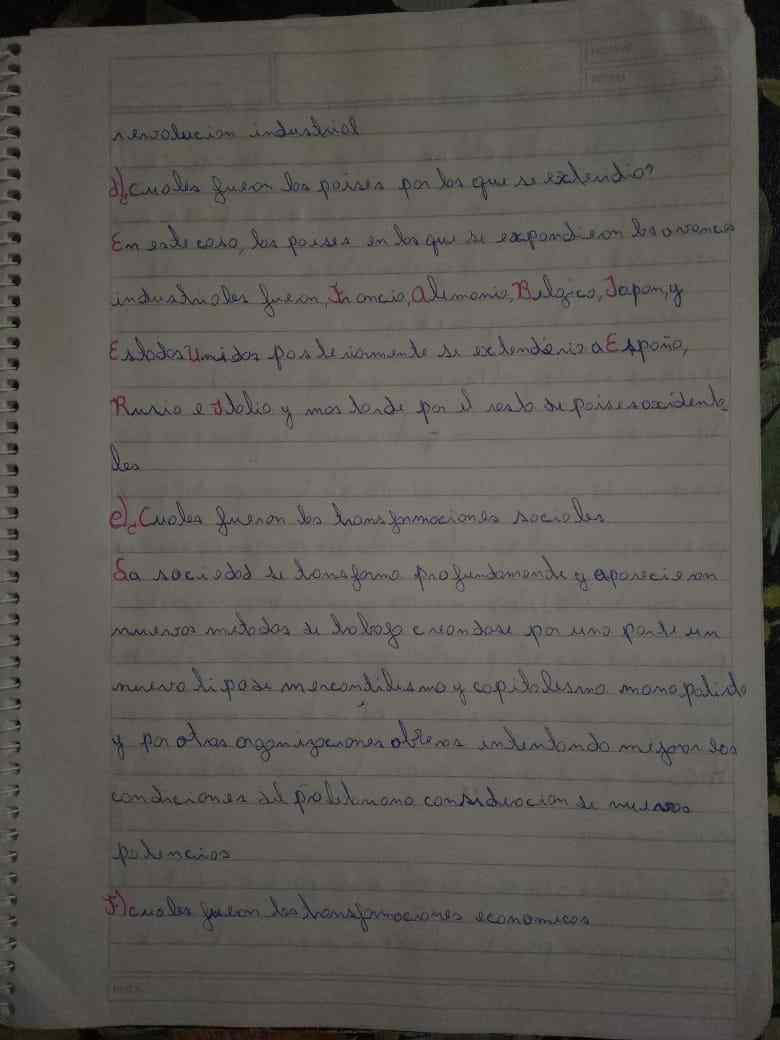 revolucion industrial
d)¿cuales fueron los paises por los que se extendio?
En este caso, los paises en los que se expandieron los avances
industriales fueron, Francia, Alemania, Belgica, Japon, y
Estados Unidos posteriormente se extenderia a España,
Rusia e Italia y mas tarde por el resto de paises occidenta
les
e)¿Cuales fueron las transformaciones sociales
La sociedad se transformo profundamente y aparecieron
nuevos metodos de trabajo creandose por una parte un
nuevo tipo de mercantilismo y capitalismo monopolista
y por otras organizaciones obreras intentando mejorar las
condiciones del proletariado consideracion de nuevas
potencias
F)cuales fueron las transformaciones economicas